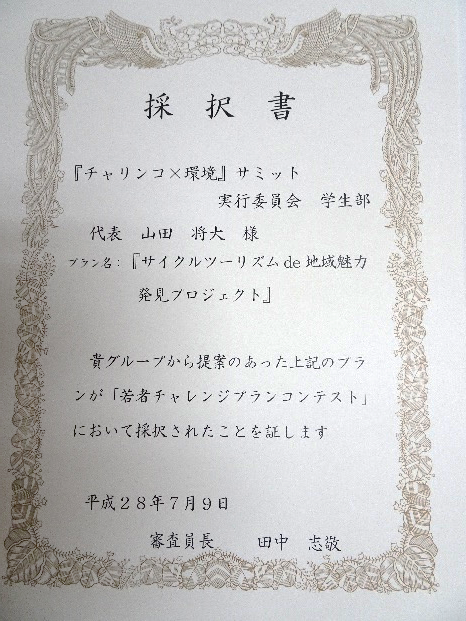 採択書
『チャリンコ×環境』サミット
実行委員会 学生部
代表 山田 将大 様
プラン名：『サイクルツーリズムde地域魅力
発見プロジェクト』
貴グループから提案のあった上記のプラ
ンが「若者チャレンジプランコンテスト」
において採択されたことを証します
平成28年7月9日
審査員長 田中 志敬